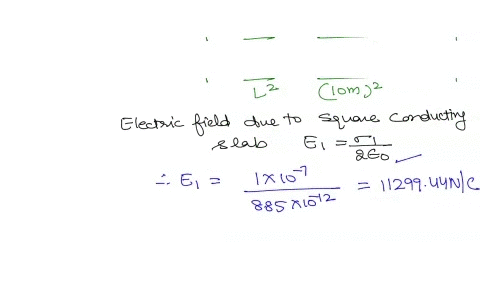 L² (10m)²
Electric field due to square conducting
slab E₁ = σ₁/2ε₀
∴ E₁ = 1×10⁻⁷/885×10⁻¹² = 11299.44N/C